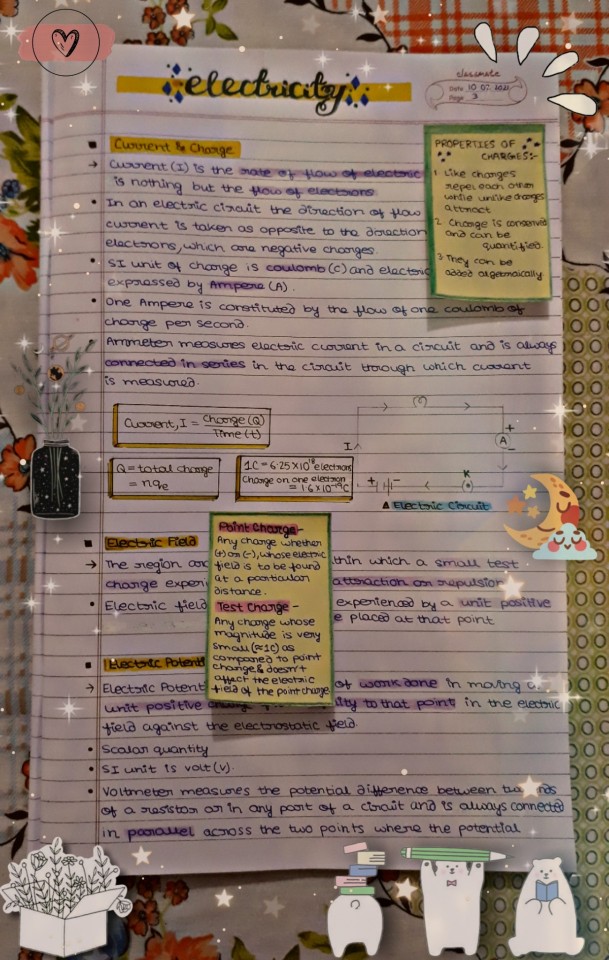 electricity
classmate
Date 10.07.2021
Page 3
Current & Charge
→ Current (I) is the rate of flow of electric
is nothing but the flow of electrons
• In an electric circuit the direction of flow
current is taken as opposite to the direction
electrons, which are negative charges.
• SI unit of charge is coulomb (C) and electric
expressed by Ampere (A).
• One Ampere is constituted by the flow of one coulomb of
charge per second.
• Ammeter measures electric current in a circuit and is always
connected in series in the circuit through which current
is measured.
PROPERTIES OF
CHARGES:-
1. Like charges
repel each other
while unlike charges
attract
2. Charge is conserved
and can be
quantified.
3. They can be
added algebraically
Current, I = Charge (Q)
Time (t)
Q = total charge
= nqe
1C = 6.25 X 10^18 electrons
Charge on one electron
= 1.6 X 10^-19 C
I
+
A
-
+ -
K
Electric Circuit
Electric Field
→ The region
thin which a small test
charge experi
attraction or repulsion
• Electric field
experienced by a unit positive
e placed at that point
Point Charge -
Any charge whether
(+) or (-), whose electric
field is to be found
at a particular
distance.
Test Charge -
Any charge whose
magnitude is very
small (≈1C) as
compared to point
charge, & doesn't
affect the electric
field of the point charge
Electric Potenti
→ Electric Potent
of work done in moving a
unit positive
ity to that point in the electric
field against the electrostatic field.
• Scalar quantity
• SI unit is volt (V).
• Voltmeter measures the potential difference between
of a resistor or in any part of a circuit and is always connected
in parallel across the two points where the potential